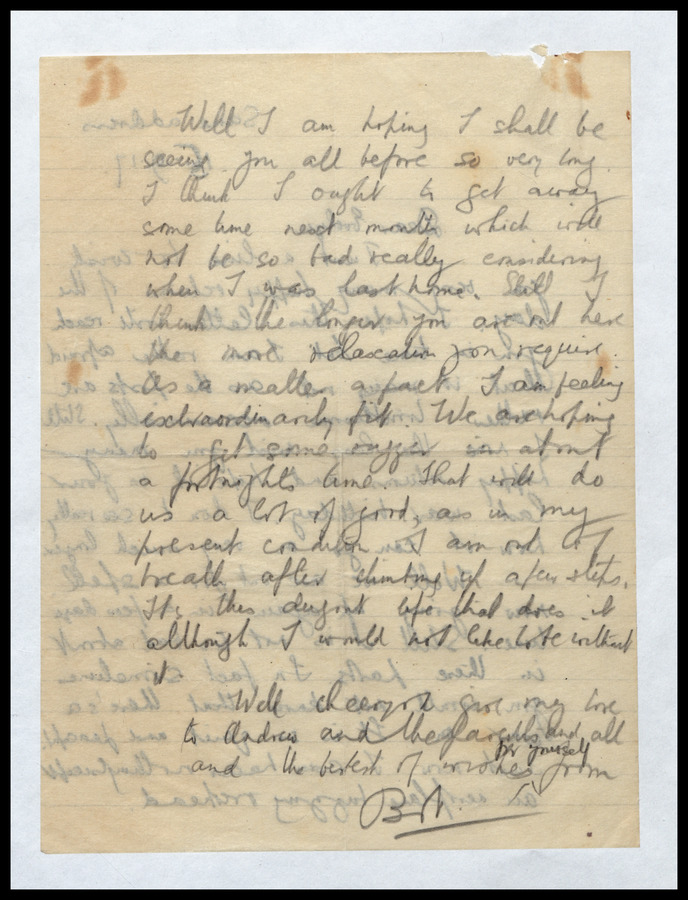 Well I am hoping I shall be
seeing you all before so very long.
I think I ought to get away
some time next month which will
not be so bad really considering
when I was last home. Still I
think the longer you are out here
the more relaxation you require.
As a matter a fact I am feeling
extraordinarily fit. We are hoping
to get some rugger in about
a fortnight's time. That will do
us a lot of good, as in my
present condition I am out of
breath after climbing up a few steps.
It's this dugout life that does it
although I would not like to be without
it
Well cheeryoh give my love
to Andrew and the parents and all
for yourself
and the bestest of wishes from
Bob.